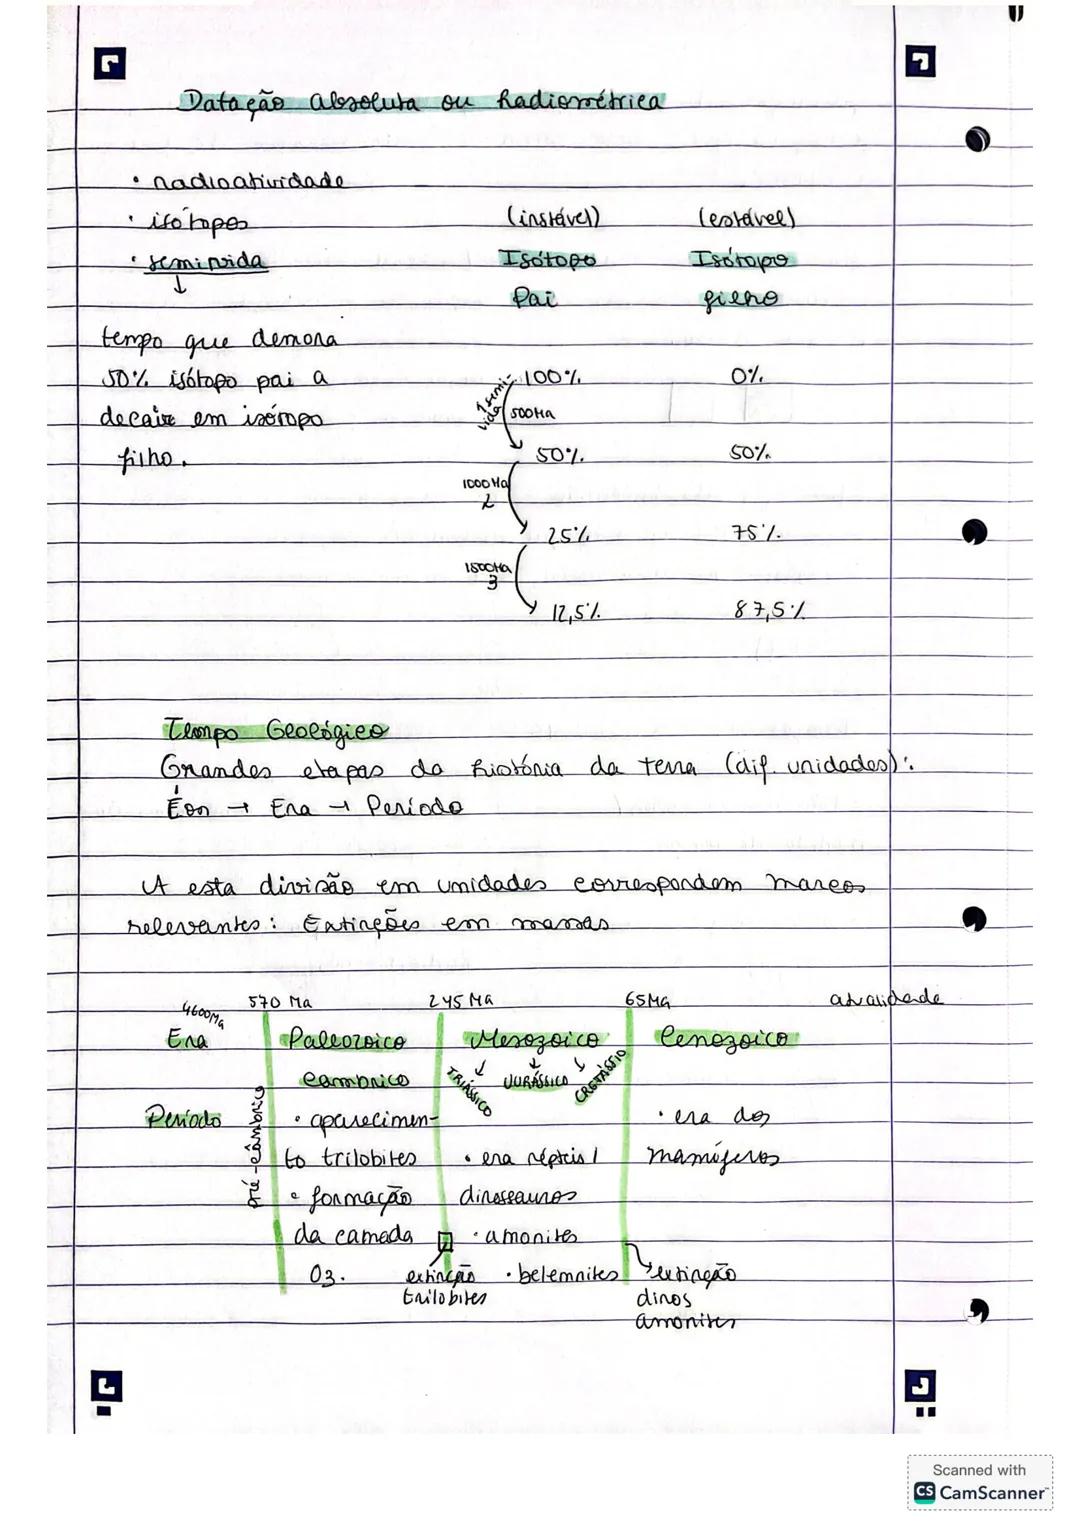 Datação absoluta ou Radiométrica
• radioatividade
• isótopos (instável) (estável)
• semi vida Isótopo Isótopo
Pai filho
tempo que demora
50% isótopo pai a 100% 0%
1 semi-vida 500 Ma
decair em isótopo
filho. 50% 50%
1000 Ma
2
25% 75%
1500 Ma
3
12,5% 87,5%
Tempo Geológico
Grandes etapas da história da terra (dif. unidades):
Éon → Era → Período
A esta divisão em unidades correspondem marcos
relevantes: Extinções em massas
4600Ma 570 Ma 245 Ma 65Ma atualidade
Era Paleozoico Mesozoico Cenozoico
câmbrico TRIÁSSICO JURÁSSICO CRETÁSSIO
Pré-câmbrico
Período • aparecimen- • era dos
to trilobites • era répteis / mamíferos
• formação dinossauros
da camada • amonites
O3. extinção • belemnites extinção
trilobites dinos
amonites
Scanned with
CS CamScanner